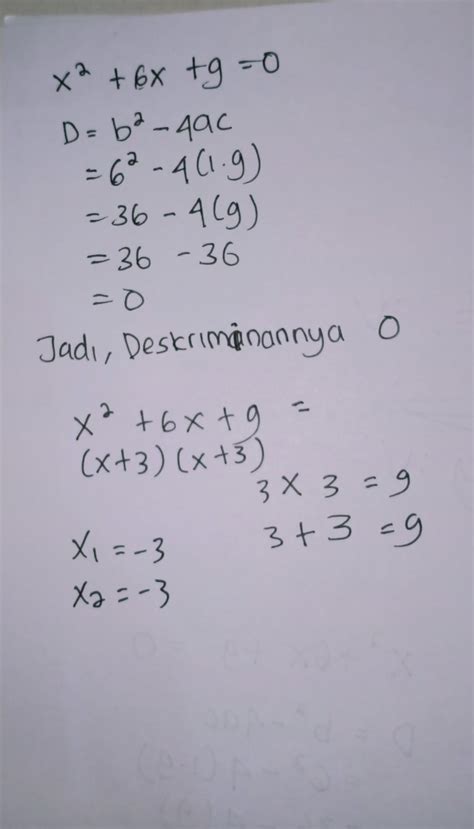 x² + 6x + 9 = 0
D = b² - 4ac
= 6² - 4(1.9)
= 36 - 4(9)
= 36 - 36
= 0
Jadi, Deskriminannya 0
x² + 6x + 9 =
(x+3) (x+3)
3 x 3 = 9
3 + 3 = 9
x₁ = -3
x₂ = -3